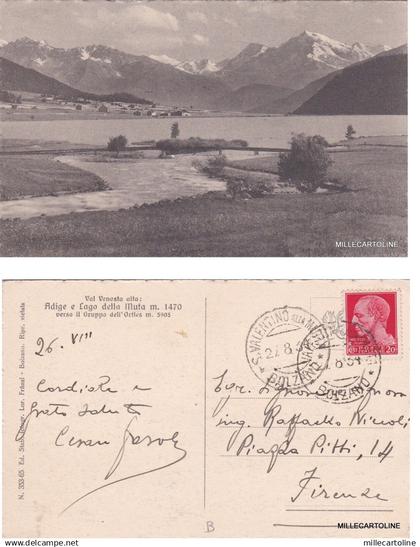 MILLECARTOLINE
Val Venosta alta:
Adige e Lago della Muta m. 1470
verso il Gruppo dell'Ortles m. 3905
26. VIII
Cordiali e
grati saluti
S. VALENTINO ALLA MUTA
27.8.34
BOLZANO
20
27.8.34
BOLZANO
ing. Raffaello Niccoli
Piazza Pitti, 14
Firenze
N. 353-65 Ed. Stab. Lor. Fränzl - Bolzano. Ripr. vietata
B
MILLECARTOLINE
www.millecartoline.com
millecartoline